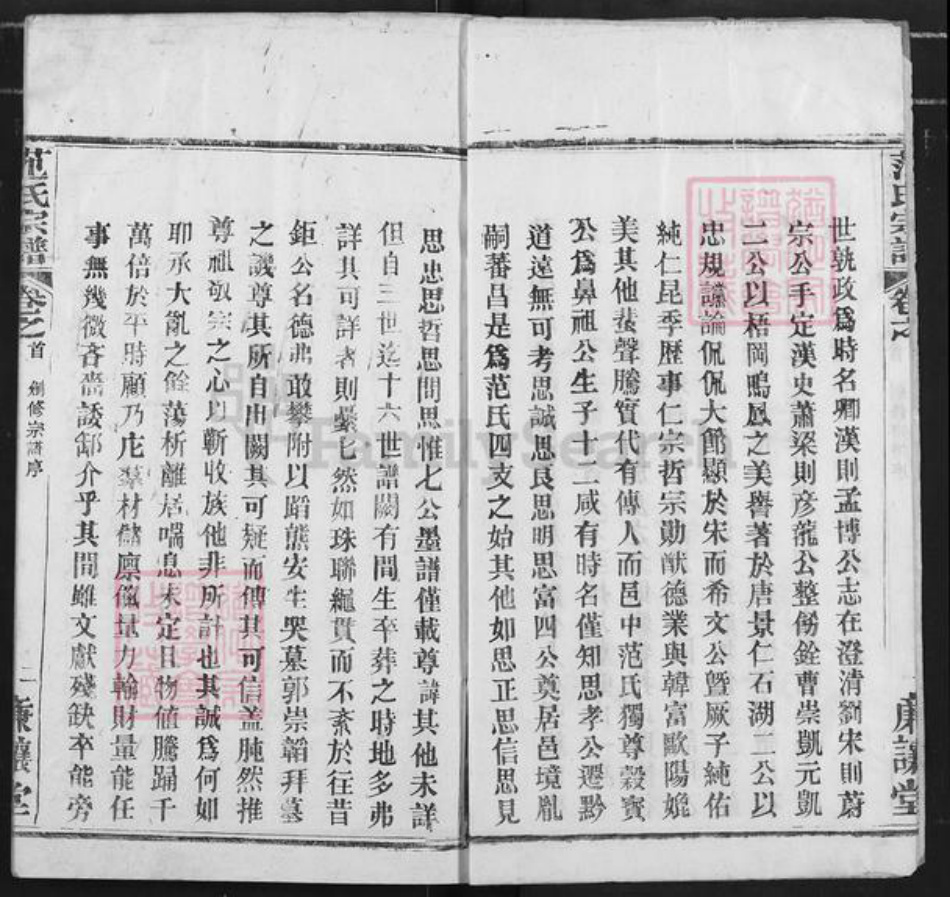 世執政爲時名卿漢則孟博公志在澄清劉宋則蔚
宗公手定漢史蕭梁則彥龍公整飭銓曹崇凱元凱
二公以梧岡鳴鳳之美譽著於唐景仁石湖二公以
忠規讜論侃侃大節顯於宋而希文公曁厥子純佑
純仁昆季歷事仁宗哲宗勛猷德業與韓富歐陽媲
美其他蜚聲騰實代有傳人而邑中范氏獨尊穀賓
公爲鼻祖公生子十二咸有時名僅知思孝公遷黔
道遠無可考思誠思艮思明思富四公奠居邑境胤
嗣蕃昌是爲范氏四支之始其他如思正思信思見
思忠思哲思問思惟七公墨譜僅載尊諱其他未詳
但自三世迄十六世譜闕有間生卒葬之時地多弗
詳其可詳者則纍匕然如珠聯繩貫而不紊於往昔
鉅公名德弗敢攀附以蹈熊安生哭墓郭崇韜拜墓
之譏尊其所自出闕其可疑而傳其可信盖肫然推
尊祖敬宗之心以蘄收族他非所計也其誠爲何如
耶承大亂之餘蕩析離居喘息未定且物値騰踊千
萬倍於平時顧乃庀羣材儲廩餼量力輸財量能任
事無幾微吝嗇諉卸介乎其間雖文獻殘缺卒能旁
范氏宗譜
卷之首
創修宗譜序
二
廉讓堂
范氏宗譜
卷之
廉讓堂
FamilySearch